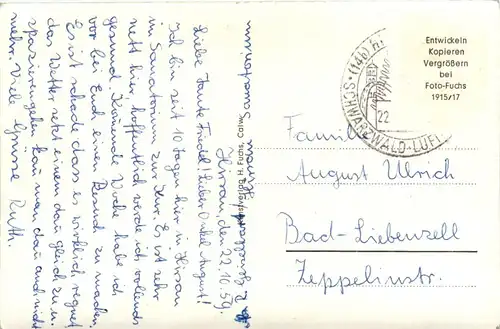 Hirsau, den 22.10.59.
Liebe Tante Friedel! Lieber Onkel August!
Ich bin seit 10 Tagen hier in Hirsau
im Sanatorium zur Kur. Es ist sehr
nett hier hoffentlich werde ich vollends
gesund. Kommende Woche habe ich
vor bei Euch einen Besuch zu machen,
Es ist schade das es wirklich regnet
das Wetter
spazierengehen kann man dan auch nicht
mehr. Viele Grüsse Ruth.
H. Fuchs, Calw.
Entwickeln
Kopieren
Vergrößern
bei
Foto-Fuchs
1915/17
(14b) Hi
SCHWARZWALD-LUF
22
Familie
August Ulrich
Bad-Liebenzell
Zeppelinstr.